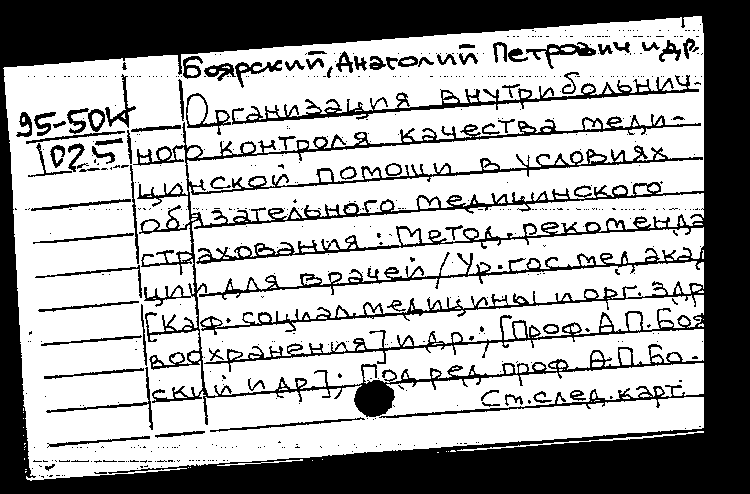 Боярский, Анатолий Петрович и др.
95-50к
1025
Организация внутрибольнич-
ного контроля качества меди-
цинской помощи в условиях
обязательного медицинского
страхования : Метод. рекоменда
ции для врачей / Ур. гос. мед. акад
[Каф. социал. медицины и орг. здр
воохранения] и др.; [Проф. А.П. Боя
ский и др.]; Под ред. проф. А.П. Бо
См. след. карт.